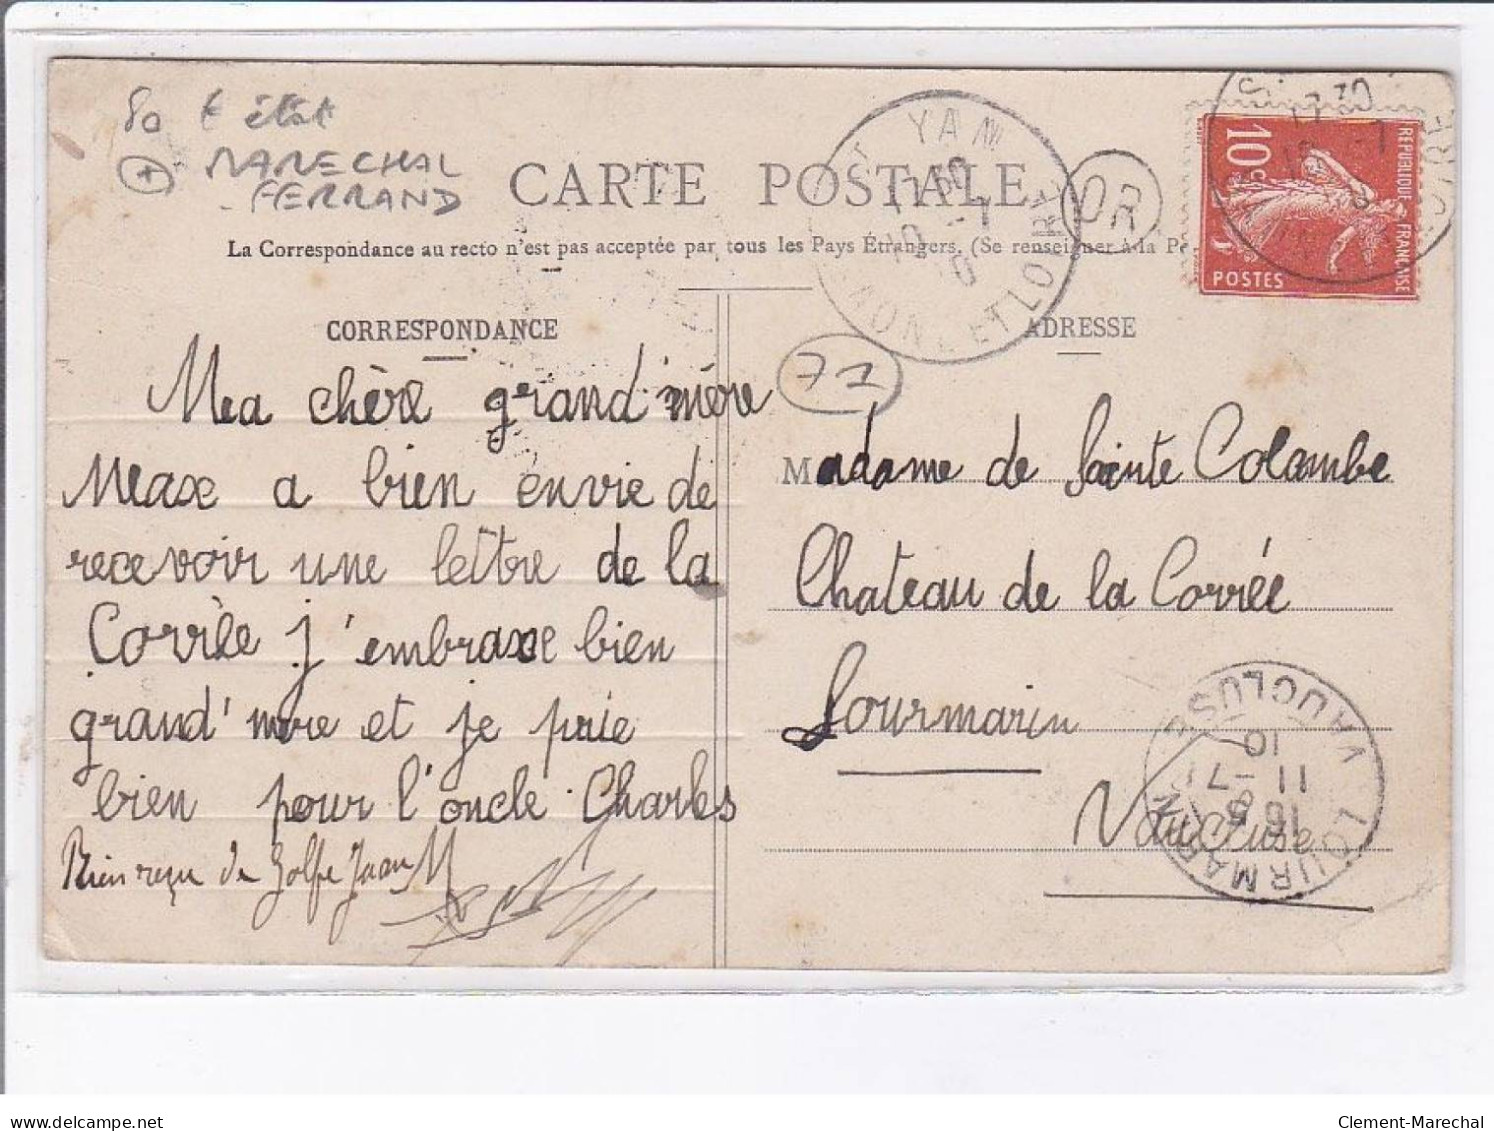 80 t état
MARECHAL
- FERRAND
CARTE POSTALE
La Correspondance au recto n'est pas acceptée par tous les Pays Étrangers. (Se renseigner à la P
OR
10c
REPUBLIQUE FRANÇAISE
POSTES
YAN
17 30
10 -7
10
ET LOIRE
17 30
CORRESPONDANCE
Ma chère grand'mère
Max a bien envie de
recevoir une lettre de la
Corrèle j'embrasse bien
grand'mère et je prie
bien pour l'oncle Charles
Bien reçu de Golfe Juan
71
ADRESSE
Madame de Sainte Colambe
Chateau de la Corrée
Lourmarin
Vaucluse
LOURMARIN
16 5
11 -7
10
VAUCLUSE
www.delcampe.net
Clement-Marechal